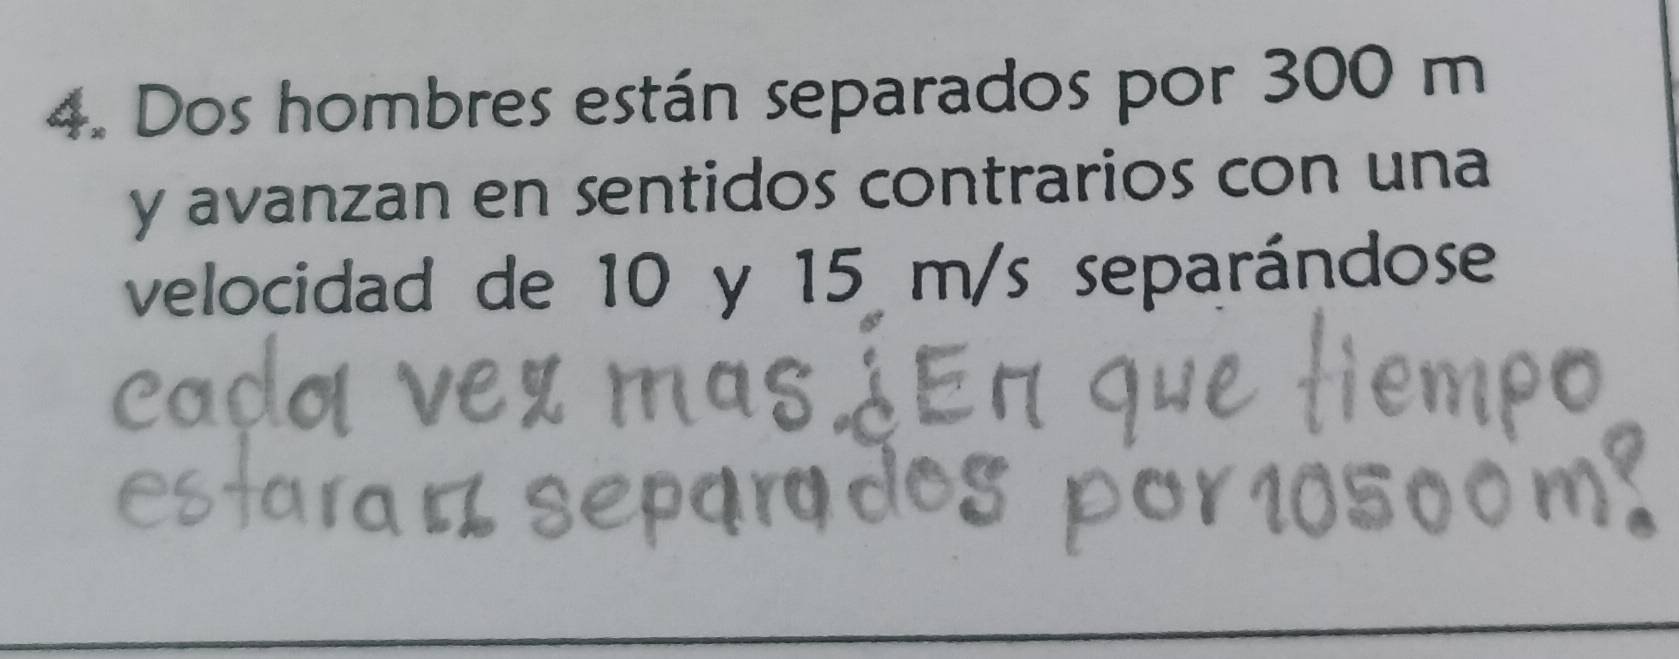 4. Dos hombres están separados por 300 m
y avanzan en sentidos contrarios con una
velocidad de 10 y 15 m/s separándose
cada vez mas.¿En que tiempo
estaran separados por 10500m?